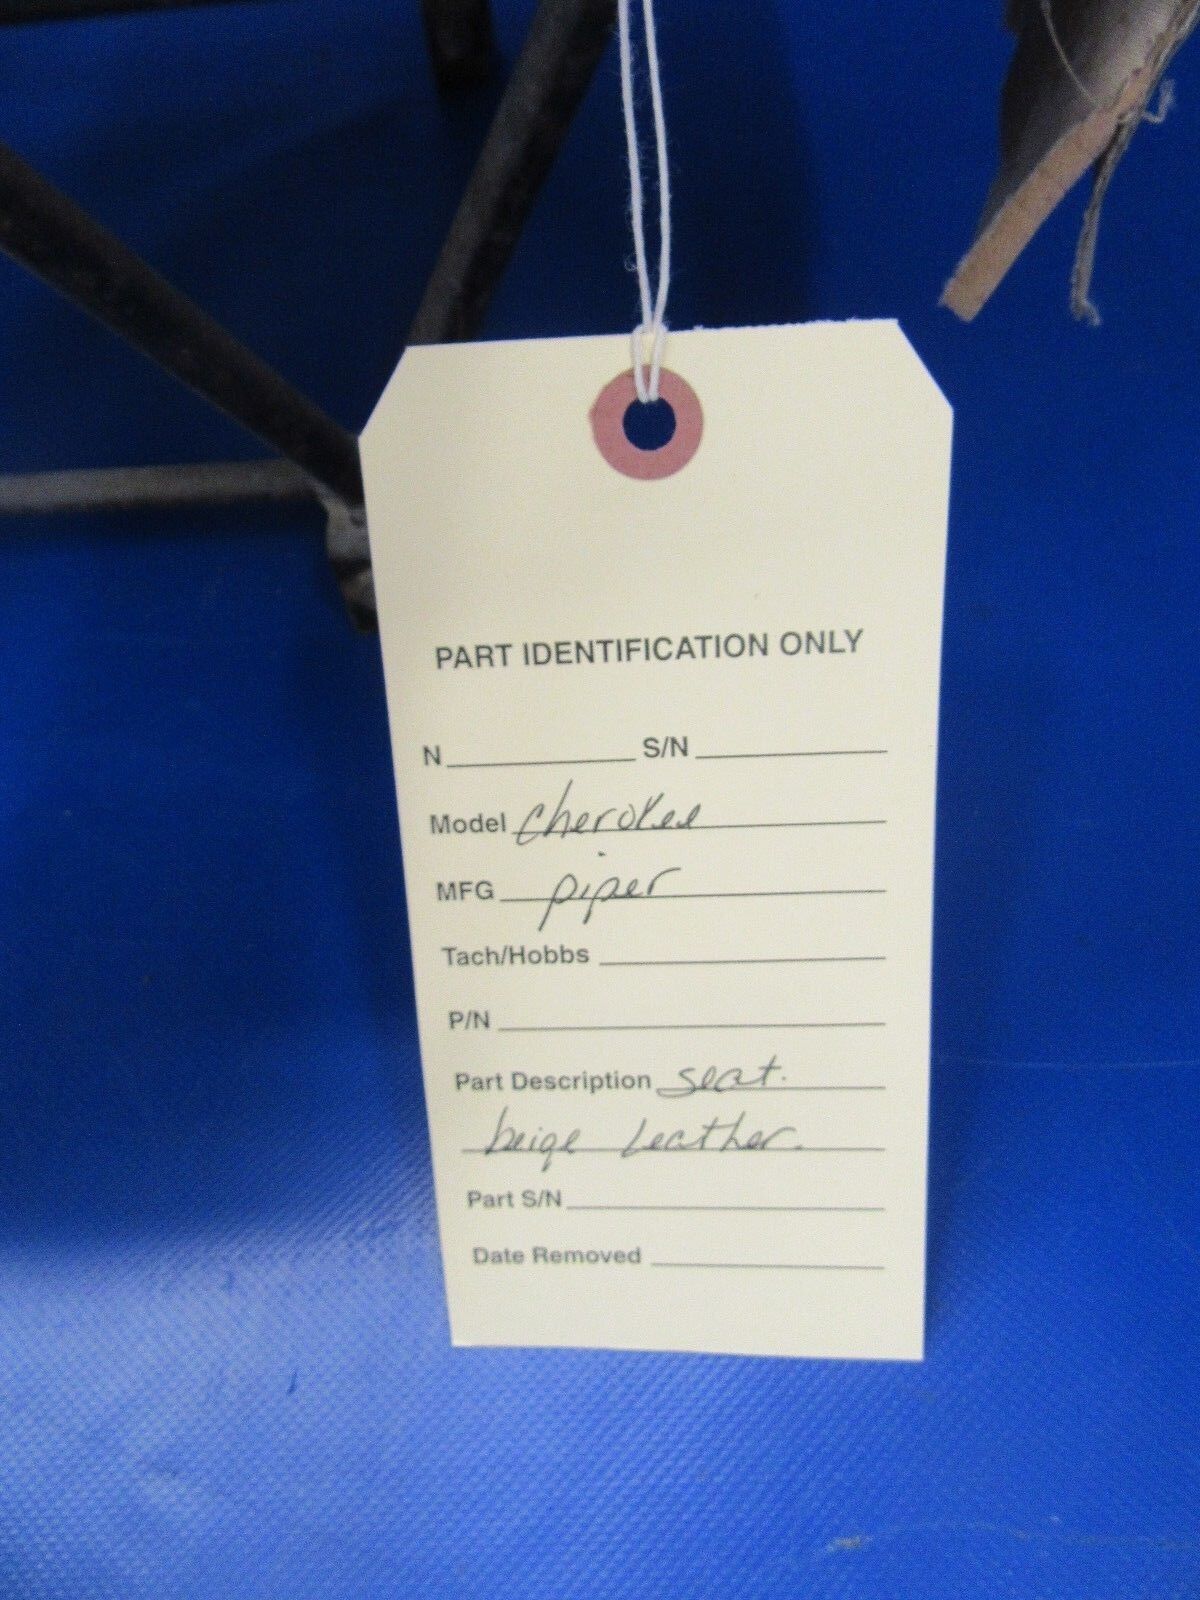 PART IDENTIFICATION ONLY
N S/N
Model cherokee
MFG piper
Tach/Hobbs
P/N
Part Description seat.
beige leather.
Part S/N
Date Removed